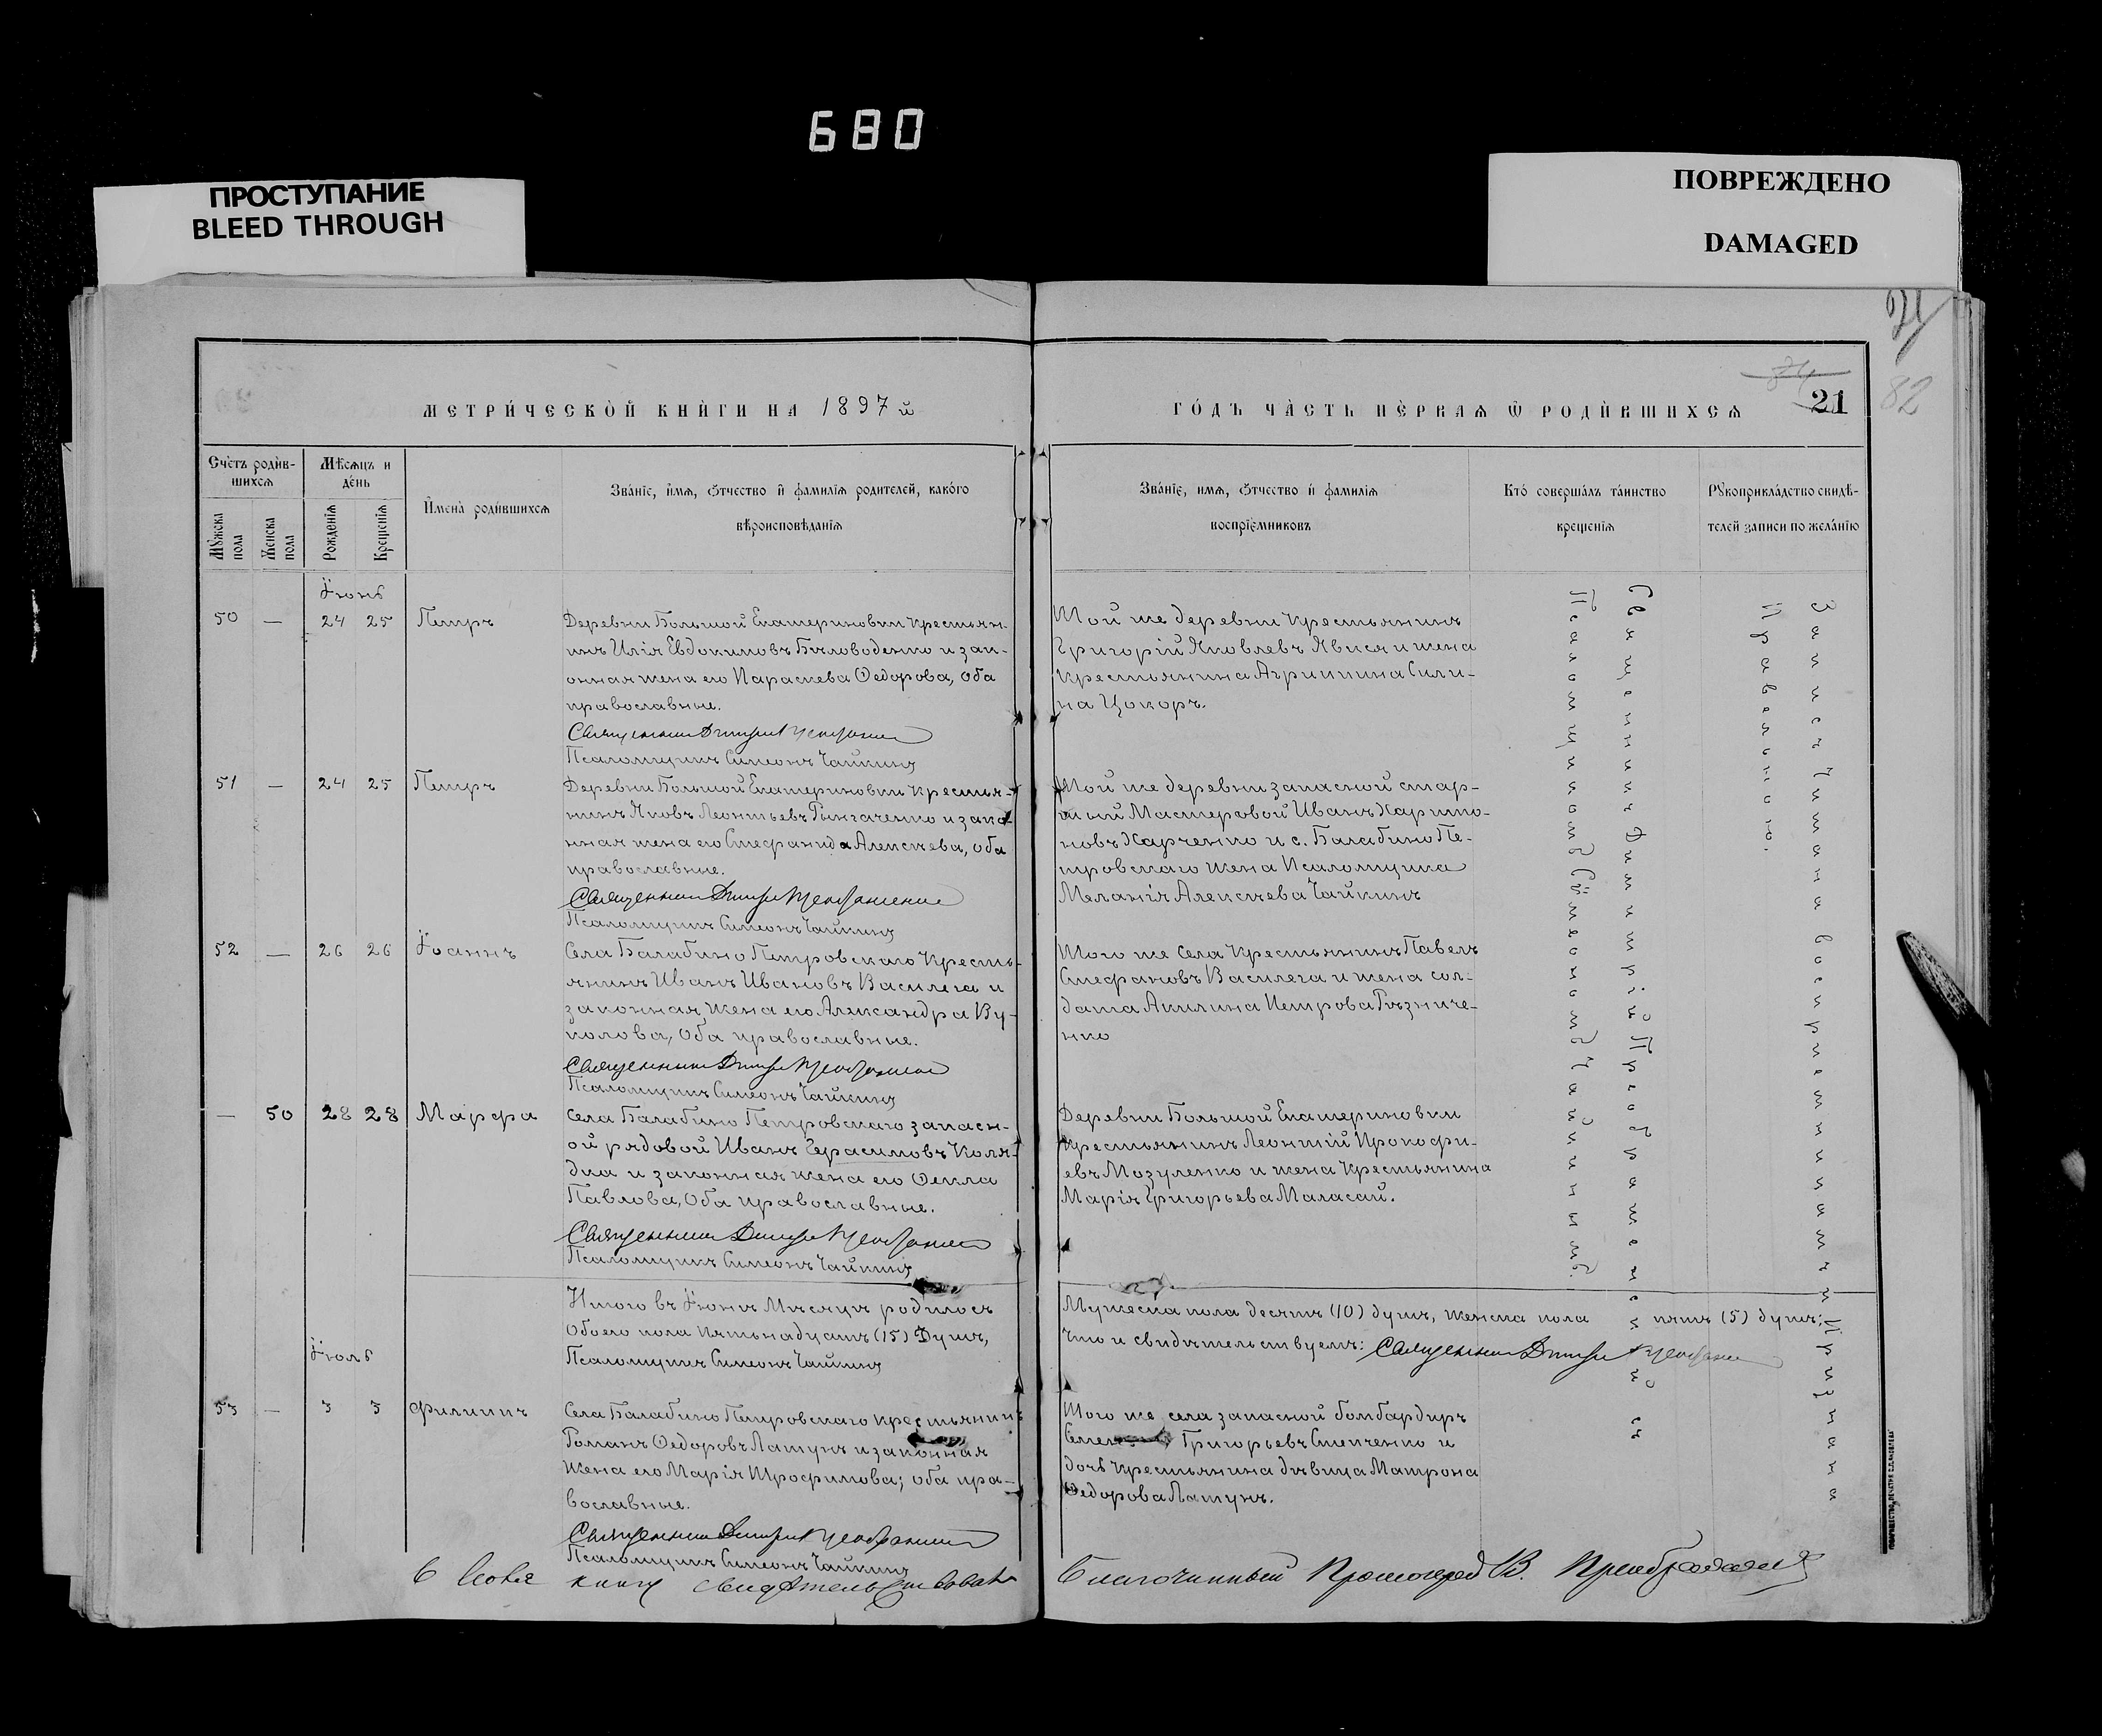 680
ПРОСТУПАНИЕ
BLEED THROUGH
ПОВРЕЖДЕНО
DAMAGED
82
21
МЕТРИ́ЧЕСКОЙ КНИ́ГИ НА 1897 й
ГО́ДЪ ЧА́СТЬ ПЕ́РВАѦ Ѡ РОДИ́ВШИХСѦ
Сче́тъ роди́в-
шихсѧ
Мѣ́сѧцъ и
де́нь
Мꙋ́жска
пола
Же́нска
пола
Рожде́нїѧ
Креще́нїѧ
И́мена̀ роди́вшихсѧ
Зва́нїе, и́мѧ, ѻ́тчество и҆ фами́лїѧ роди́телей, како́го
вѣроисповѣ́данїѧ
Зва́нїе, имѧ, ѻ́тчество и҆ фами́лїѧ
воспрїе́мниковъ
Кто́ соверша́лъ та́инство
креще́нїѧ
Рꙋкоприкла́дство свидѣ́-
телей записи по жела́нїю
Іюнь
50 — 24 25 Петръ
Деревни Большой Екатериновки крестьян-
инъ Илія Евдокимовъ Бѣловоденко и зак-
онная жена его Параскева Ѳедорова, оба
православные.
Священникъ Дмитрій Преображенскій
Псаломщикъ Симеонъ Чайкинъ
Той же деревни крестьянинъ
Григорій Яковлевъ Явися и жена
крестьянина Агрипина Сили-
на Цокоръ.
51 — 24 25 Петръ
Деревни Большой Екатериновки крестья-
нинъ Яковъ Леонтьевъ Гынгаченко и зако-
нная жена его Стефанида Алексѣева, оба
православные.
Священникъ Дмитрій Преображенскій
Псаломщикъ Симеонъ Чайкинъ
Той же деревни запасной стар-
шій Мастеровой Иванъ Харито-
новъ Харченко и с. Балабино Пе-
тровскаго жена Псаломщика
Меланія Алексѣева Чайкинъ
52 — 26 26 Іоаннъ
Села Балабино Петровскаго кресть-
янинъ Иванъ Ивановъ Василега и
законная жена его Александра Ву-
колова, оба православные.
Священникъ Дмитрій Преображенскій
Псаломщикъ Симеонъ Чайкинъ
Того же села крестьянинъ Павелъ
Стефановъ Василега и жена сол-
дата Акилина Петрова Рѣзниче-
нко
— 50 28 28 Марфа
Села Балабино Петровскаго запасн-
ой рядовой Иванъ Герасимовъ Коля-
дка и законная жена его Ѳекла
Павлова, оба православные.
Священникъ Дмитрій Преображенскій
Псаломщикъ Симеонъ Чайкинъ
Деревни Большой Екатериновки
крестьянинъ Леонтій Прокофи-
евъ Мозуленко и жена крестьянина
Марія Григорьева Маласай.
Итого въ Іюнѣ Мѣсяцѣ родилось
обоего пола пятьнадцать (15) Душъ,
Псаломщикъ Симеонъ Чайкинъ
Мужеска пола десять (10) душъ, женска пола пять (5) душъ;
что и свидѣтельствуемъ: Священникъ Дмитрій Преображенскій
Іюль
53 — 3 3 Филиппъ
Села Балабино Петровскаго крестьянинъ
Романъ Ѳедоровъ Латунъ и законная
жена его Марія Трофимова; оба пра-
вославные.
Священникъ Дмитрій Преображенскій
Псаломщикъ Симеонъ Чайкинъ
Того же села запасной бомбардиръ
Григорьевъ Степченко и
дочь крестьянина дѣвица Матрона
Ѳедорова Латунъ.
Священникъ Димитрій Преображенскій съ
Псаломщикомъ Сѵмеономъ Чайкинымъ.
Запись читана воспріятниками и признана
Правильною.
книгу свидѣтельствовалъ Благочинный Протоіерей В. Преображенскій